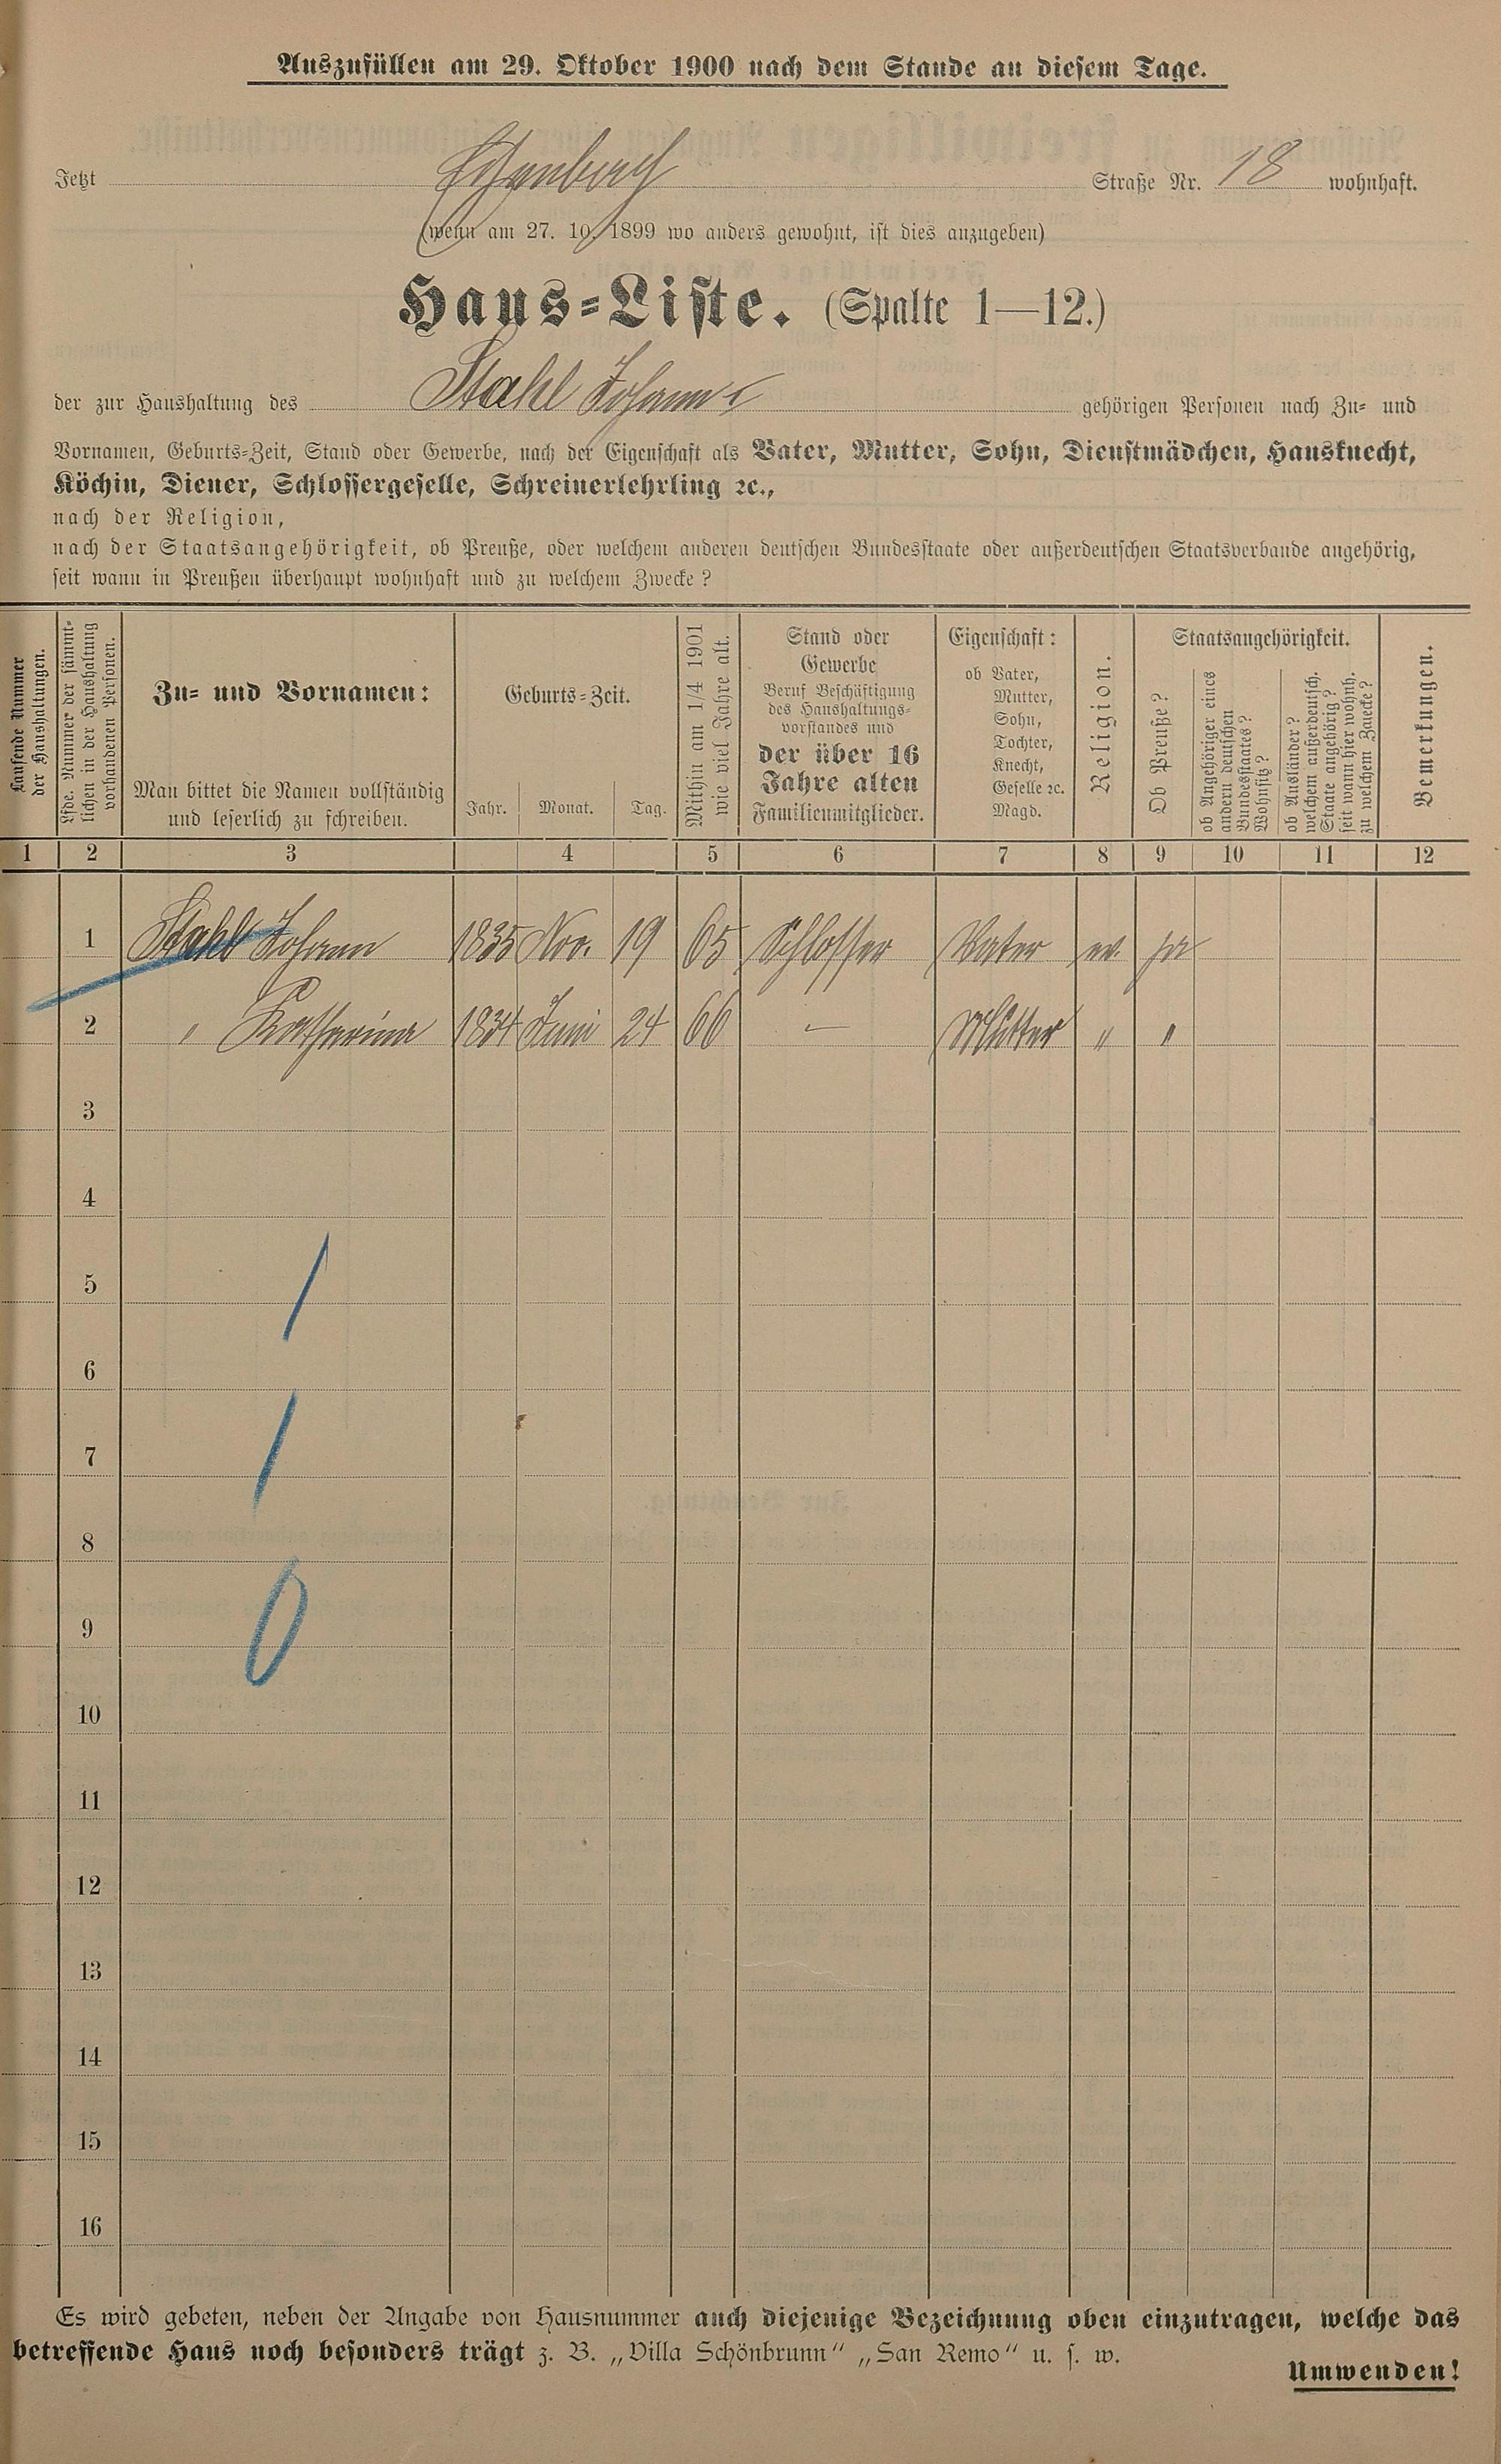 Auszufüllen am 29. Oktober 1900 nach dem Stande an diesem Tage.
Jetzt Straße Nr. 18 wohnhaft.
(wenn am 27. 10. 1899 wo anders gewohnt, ist dies anzugeben)
Haus-Liste. (Spalte 1—12.)
der zur Haushaltung des Stahl Johann gehörigen Personen nach Zu- und
Vornamen, Geburts-Zeit, Stand oder Gewerbe, nach der Eigenschaft als Vater, Mutter, Sohn, Dienstmädchen, Hausknecht,
Köchin, Diener, Schlossergeselle, Schreinerlehrling ꝛc.,
nach der Religion,
nach der Staatsangehörigkeit, ob Preuße, oder welchem anderen deutschen Bundesstaate oder außerdeutschen Staatsverbande angehörig,
seit wann in Preußen überhaupt wohnhaft und zu welchem Zwecke?
Laufende Nummer
der Haushaltungen.
Lfde. Nummer der sämmt-
lichen in der Haushaltung
vorhandenen Personen.
Zu- und Vornamen:
Man bittet die Namen vollständig
und leserlich zu schreiben.
Geburts-Zeit.
Jahr. Monat. Tag.
Mithin am 1/4 1901
wie viel Jahre alt.
Stand oder
Gewerbe
Beruf Beschäftigung
des Haushaltungs-
vorstandes und
der über 16
Jahre alten
Familienmitglieder.
Eigenschaft:
ob Vater,
Mutter,
Sohn,
Tochter,
Knecht,
Geselle ꝛc.
Magd.
Religion.
Staatsangehörigkeit.
Ob Preuße?
ob Angehöriger eines
andern deutschen
Bundesstaates?
Wohnsitz?
ob Ausländer?
welchem außerdeutsch.
Staate angehörig?
seit wann hier wohnh.
zu welchem Zwecke?
Bemerkungen.
1 2 3 4 5 6 7 8 9 10 11 12
1 Stahl Johann 1835 Nov. 19 65 Schlosser Vater ev. ja
2 " Katharina 1834 Juni 24 66 — Mutter " "
3
4
5
6
7
8
9
10
11
12
13
14
15
16
Es wird gebeten, neben der Angabe von Hausnummer auch diejenige Bezeichnung oben einzutragen, welche das
betreffende Haus noch besonders trägt z. B. „Villa Schönbrunn“ „San Remo“ u. s. w.
Umwenden!